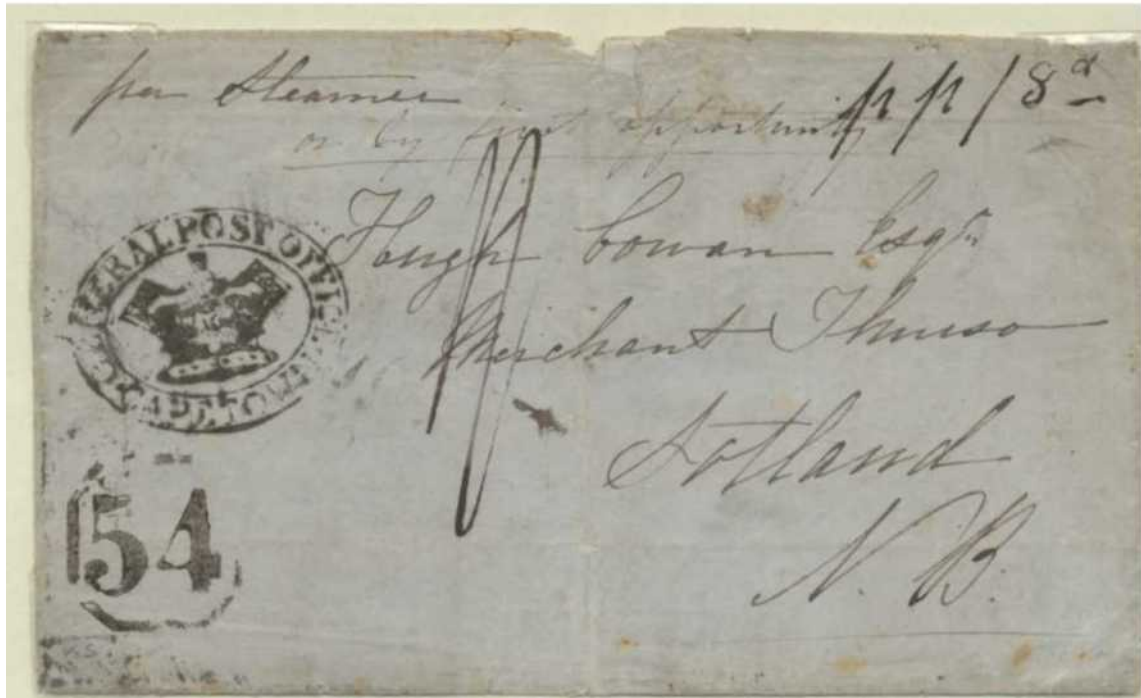 per Steamer
p p / 8 d
or by first opportunity
Hugh Cowan Esqr.
Merchant Thurso
Scotland
N. B.
GENERAL POST OFFICE
CAPE TOWN
54